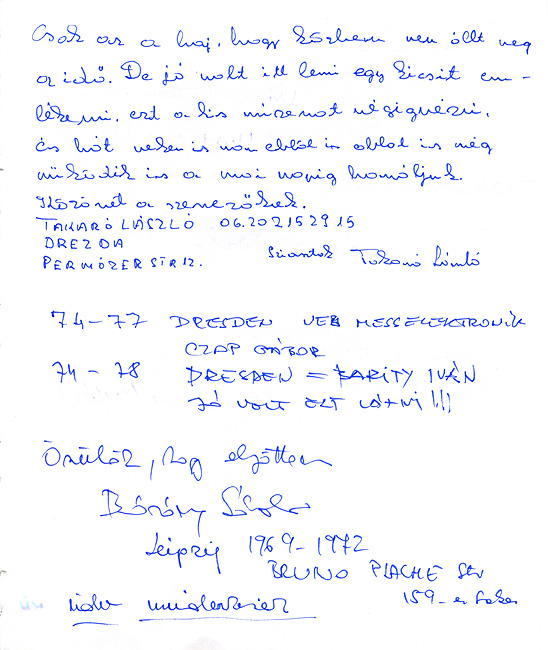 Csak az a baj, hogy közben nem állt meg
az idő. De jó volt itt lenni egy kicsit em-
lékezni, ezt a kis múzeumot végignézni,
és hát nekem is van ebből is abból is még
működik is a mai napig használjuk.
Köszönet a szervezőknek.
TAKARÓ LÁSZLÓ 06.202152915
DREZDA
PERMÓZER STR 12. Takaró László
74-77 DRESDEN VEB MESSELEKTRONIK
CZAP GÁBOR
74-78 DRESDEN = KARITY IVÁN
JÓ VOLT EZT LÁTNI !!!
Örülök, hogy eljöttem
Bárány
Leipzig 1969-1972
BRUNO PLACHE Str
159-es
üdv mindenkinek